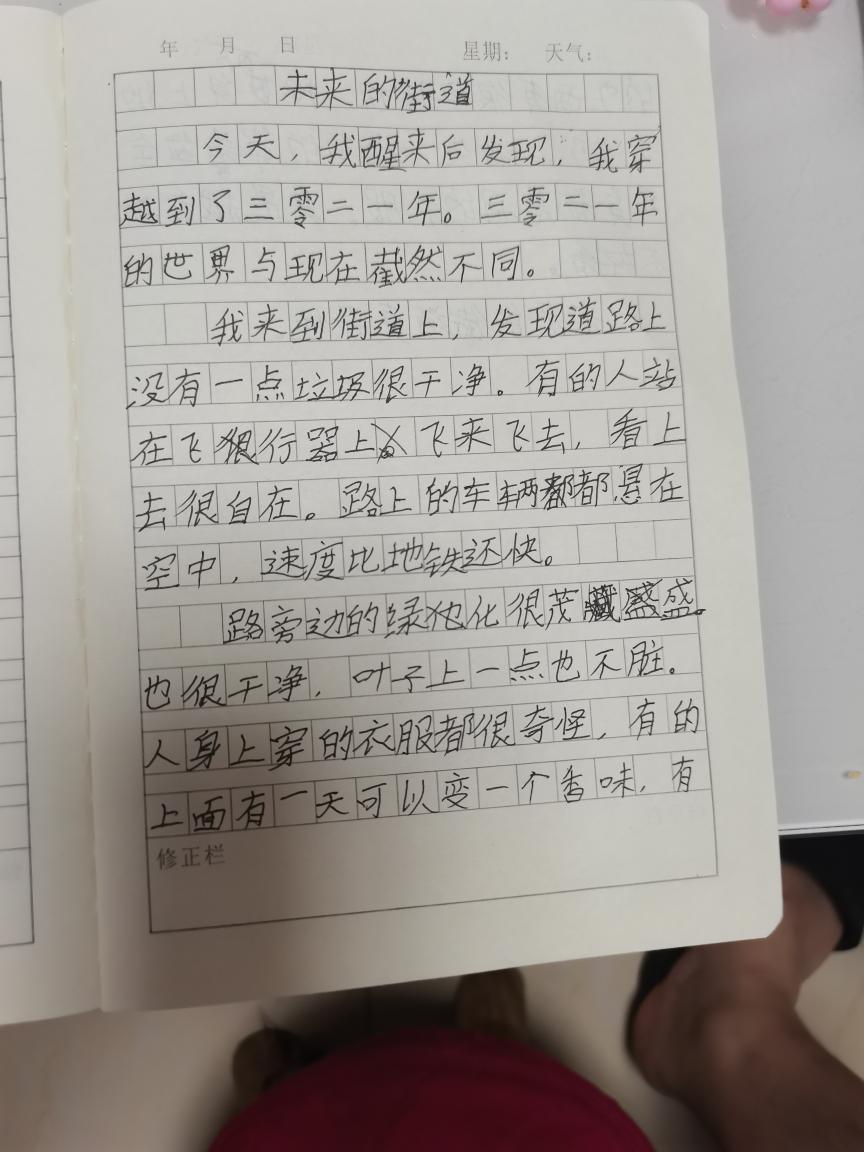 年 月 日 星期： 天气：
未来的街道
今天，我醒来后发现，我穿
越到了三零二一年。三零二一年
的世界与现在截然不同。
我来到街道上，发现道路上
没有一点垃圾很干净。有的人站
在飞行器上飞来飞去，看上
去很自在。路上的车辆都悬在
空中，速度比地铁还快。
路旁边的绿化很茂盛。
也很干净，叶子上一点也不脏。
人身上穿的衣服都很奇怪，有的
上面有一天可以变一个香味，有
修正栏